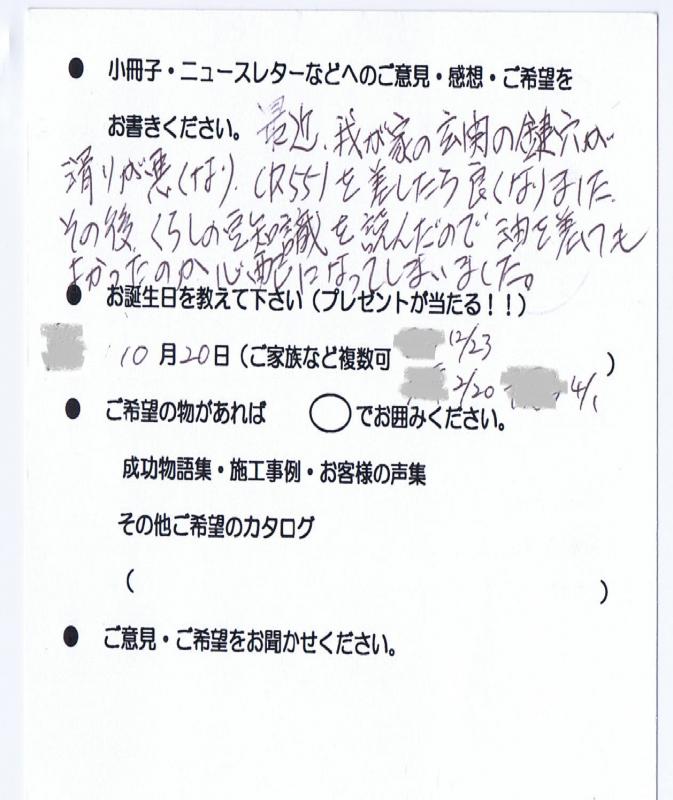 ● 小冊子・ニュースレターなどへのご意見・感想・ご希望を
お書きください。 最近、我が家の玄関の鍵穴が
滑りが悪くなり、CR55)を差したら良くなりました。
その後、くらしの豆知識を読んだので油を差しても
よかったのか心配になってしまいました。
● お誕生日を教えて下さい（プレゼントが当たる！！）
10月20日（ご家族など複数可 12/23 ）
2/20 4/1
● ご希望の物があれば ◯でお囲みください。
成功物語集・施工事例・お客様の声集
その他ご希望のカタログ
（ ）
● ご意見・ご希望をお聞かせください。